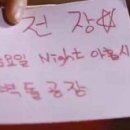 전 장☆
금요일 Night 아홉시
벽돌공장